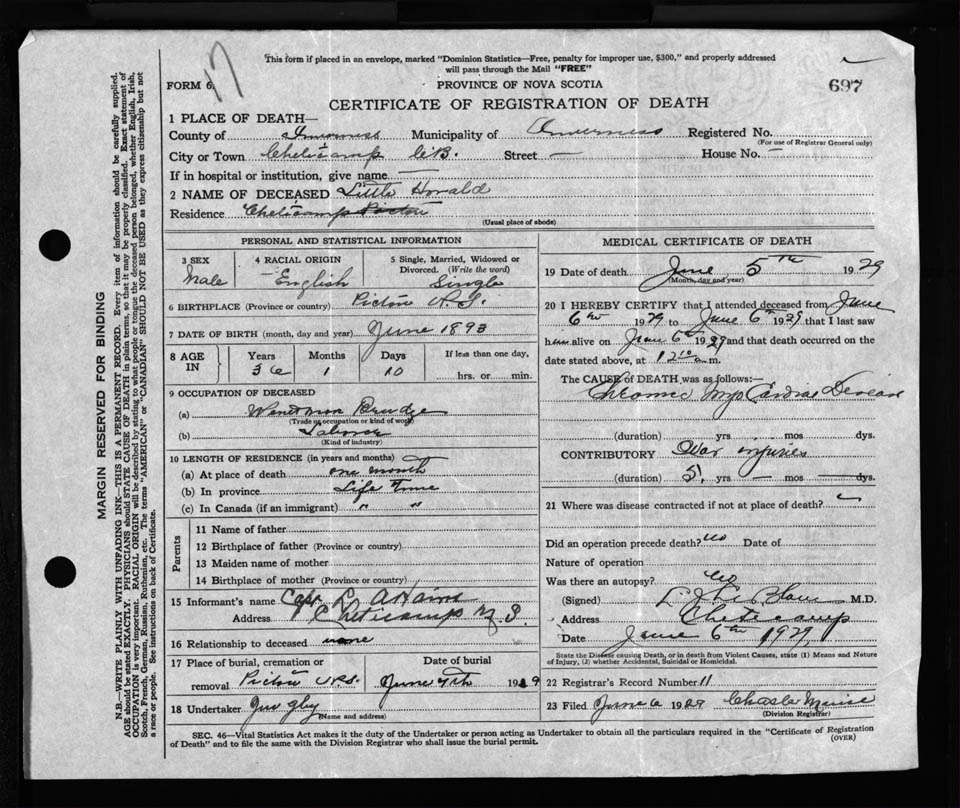 This form if placed in an envelope, marked "Dominion Statistics—Free, penalty for improper use, $300," and properly addressed
will pass through the Mail "FREE"
17
FORM 6.
PROVINCE OF NOVA SCOTIA
697
CERTIFICATE OF REGISTRATION OF DEATH
1 PLACE OF DEATH—
County of Inverness Municipality of Inverness Registered No.
(For use of Registrar General only)
City or Town Cheticamp C.B. Street — House No. —
If in hospital or institution, give name —
2 NAME OF DECEASED Little Horald
Residence Cheticamp Pictou
(Usual place of abode)
PERSONAL AND STATISTICAL INFORMATION
3 SEX
Male
4 RACIAL ORIGIN
English
5 Single, Married, Widowed or
Divorced. (Write the word)
Single
6 BIRTHPLACE (Province or country) Pictou N.S.
7 DATE OF BIRTH (month, day and year) June 1893
8 AGE IN
Years Months Days If less than one day,
36 1 10 hrs. or min.
9 OCCUPATION OF DECEASED
(a)
(Trade, occupation or kind of work)
(b) Laborer
(Kind of industry)
10 LENGTH OF RESIDENCE (in years and months)
(a) At place of death one month
(b) In province Life Time
(c) In Canada (if an immigrant) " "
Parents
11 Name of father
12 Birthplace of father (Province or country)
13 Maiden name of mother
14 Birthplace of mother (Province or country)
15 Informant's name Capt. Adams
Address Cheticamp N.S.
16 Relationship to deceased none
17 Place of burial, cremation or removal Pictou N.S.
Date of burial June 7th 1929
18 Undertaker
(Name and address)
MEDICAL CERTIFICATE OF DEATH
19 Date of death June 5th 1929
(Month, day and year)
20 I HEREBY CERTIFY that I attended deceased from June
6th 1929 to June 6th 1929 that I last saw
him alive on June 6th 1929 and that death occurred on
date stated above, at 12 10 a.m.
The CAUSE of DEATH was as follows:—
Chronic Myo Cardiac Disease
(duration) yrs mos dys.
CONTRIBUTORY War injuries
(duration) 5 yrs — mos dys.
21 Where was disease contracted if not at place of death?
Did an operation precede death? No Date of
Nature of operation
Was there an autopsy? No
(Signed) M.D.
Address Cheticamp
Date June 6th 1929
State the Disease causing Death, or in death from Violent Causes, state (1) Means and Nature
of Injury, (2) whether Accidental, Suicidal or Homicidal.
22 Registrar's Record Number 11
23 Filed June 6 1929
(Division Registrar)
SEC. 46—Vital Statistics Act makes it the duty of the Undertaker or person acting as Undertaker to obtain all the particulars required in the "Certificate of Registration
of Death" and to file the same with the Division Registrar who shall issue the burial permit.
(OVER)
MARGIN RESERVED FOR BINDING
N.B.—WRITE PLAINLY WITH UNFADING INK—THIS IS A PERMANENT RECORD. Every item of information should be carefully supplied.
AGE should be stated EXACTLY. PHYSICIANS should STATE CAUSE OF DEATH in plain terms, so that it may be properly classified. Exact statement of
OCCUPATION is very important. RACIAL ORIGIN will be described by stating to what people or tongue the deceased person belonged, whether English, Irish,
Scotch, French, German, Russian, Ruthenian, etc. The terms "AMERICAN" or "CANADIAN" SHOULD NOT BE USED as they express citizenship but not
a race or people. See instructions on back of Certificate.